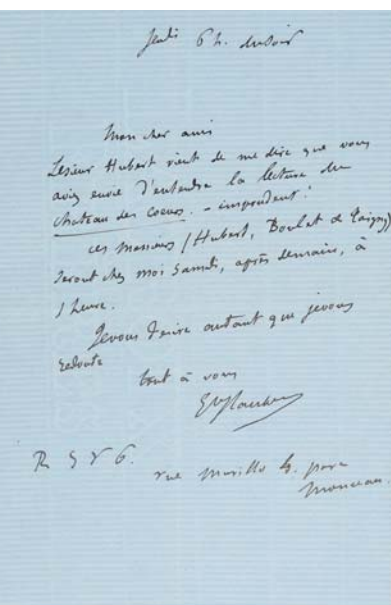 Jeudi 6 h. du soir
Mon cher ami
Lesieur Hubert vient de me dire que vous
aviez envie d'entendre la lecture du
chateau des Coeurs. – imprudent!
ces Messieurs (Hubert, Boulet &
seront chez moi samedi, après demain, à
1 heure.
Jevous desire autant que jevous
redoute
tout à vous
GveFlaubert
R S V P.
rue Murillo 4. parc
Monceau.